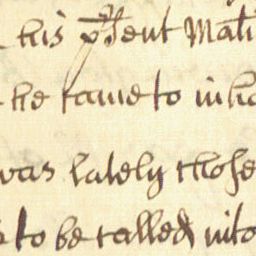 his p'sent Mati
he came to inha
was lately chose
to be called into